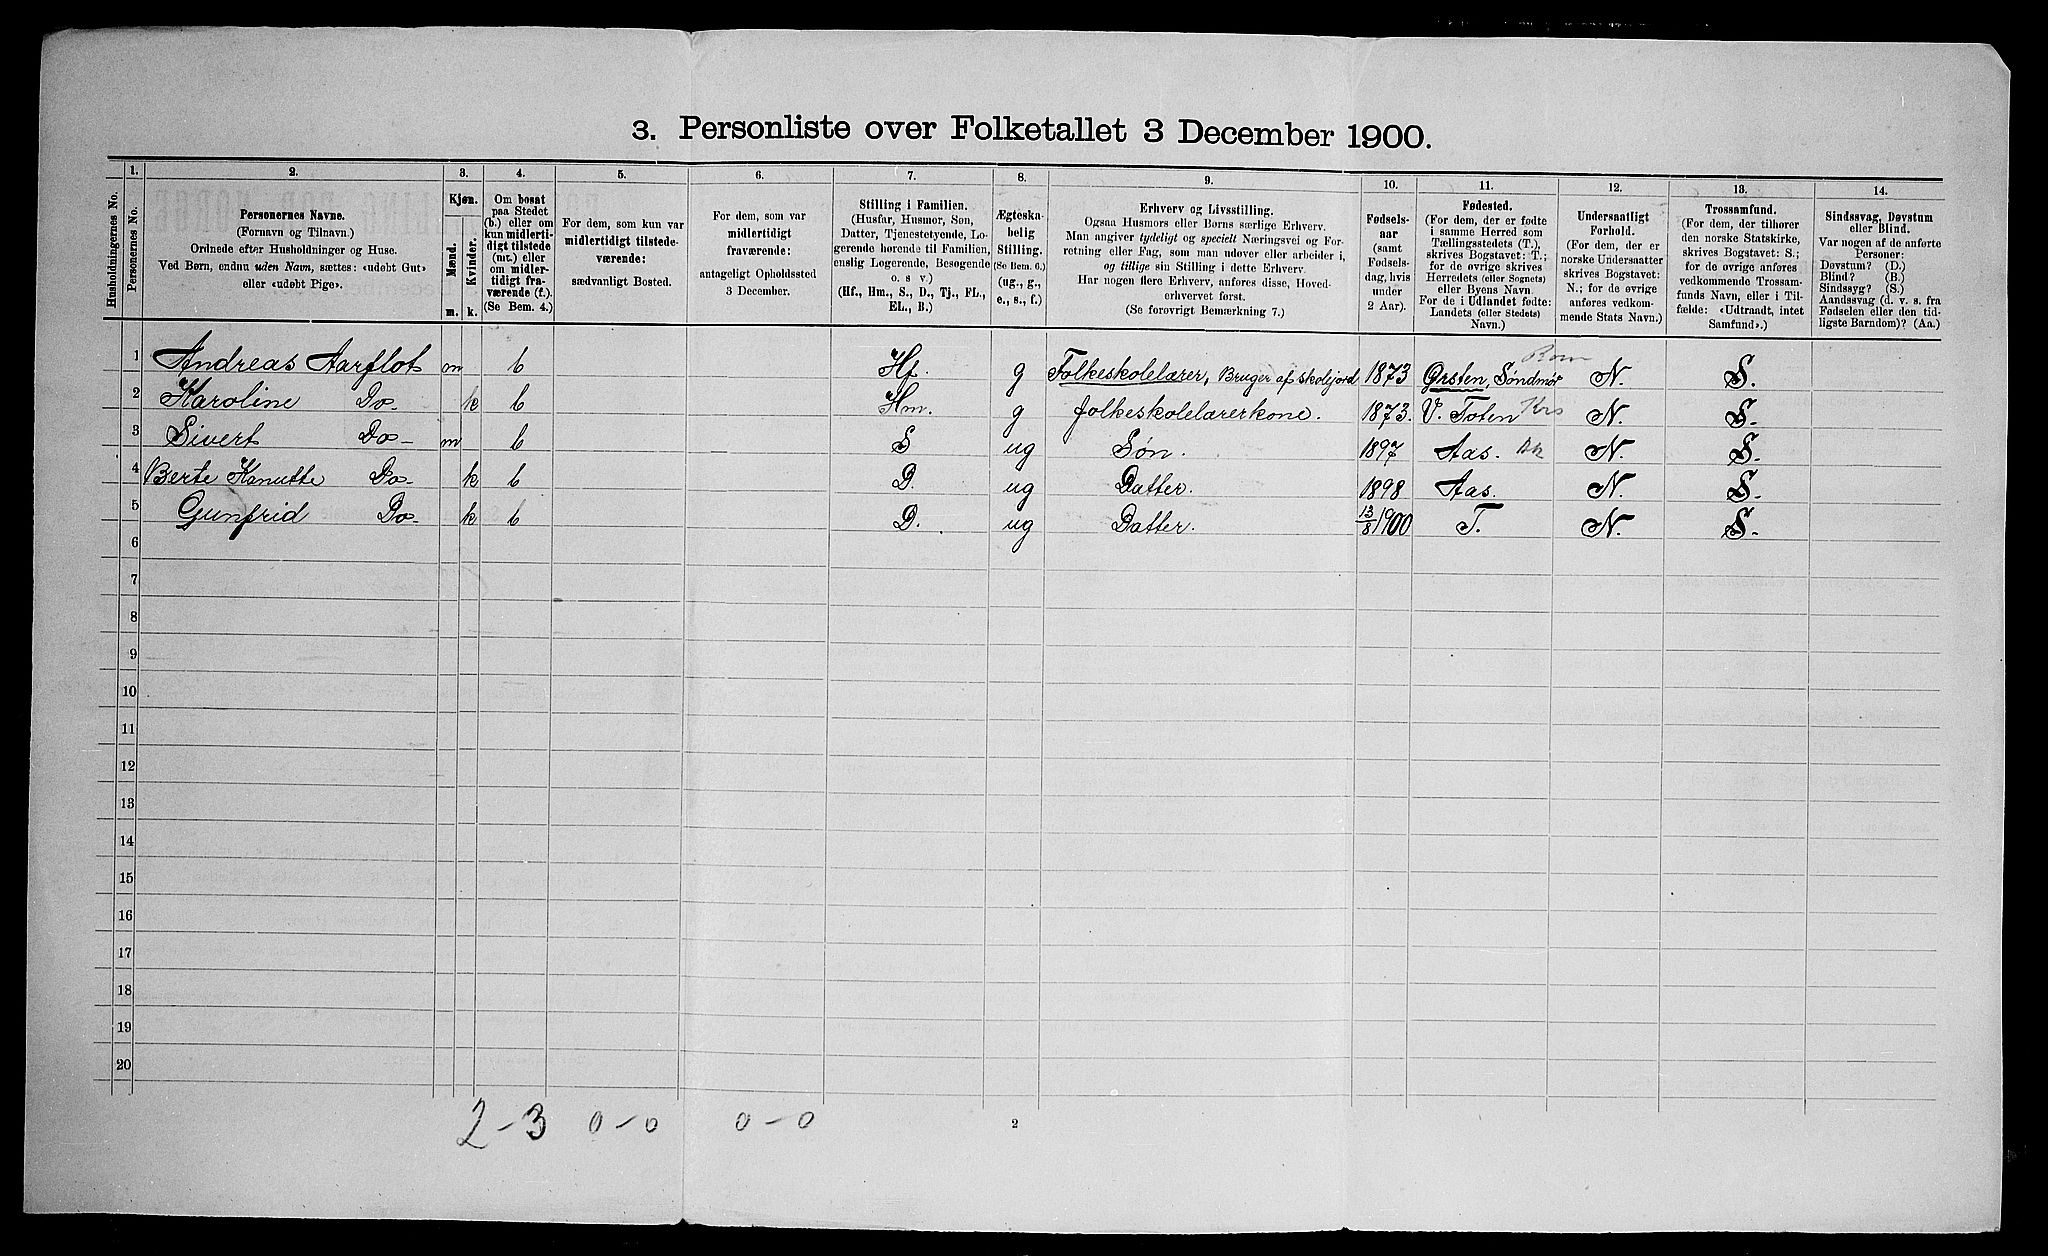 3. Personliste over Folketallet 3 December 1900.
1. 2. 3. 4. 5. 6. 7. 8. 9. 10. 11. 12. 13. 14.
Husholdningernes No.
Personernes No.
Personernes Navne.
(Fornavn og Tilnavn.)
Ordnede efter Husholdninger og Huse.
Ved Børn, endnu uden Navn, sættes: «udøbt Gut»
eller «udøbt Pige».
Kjøn.
Mænd.
Kvinder.
m. k.
Om bosat
paa Stedet
(b.) eller om
kun midlerti-
digt tilstede
(mt.) eller
om midler-
tidigt fra-
værende (f.)
(Se Bem. 4.)
For dem, som kun var
midlertidigt tilstede-
værende:
sædvanligt Bosted.
For dem, som var
midlertidigt
fraværende:
antageligt Opholdssted
3 December.
Stilling i Familien.
(Husfar, Husmor, Søn,
Datter, Tjenestetyende, Lo-
gerende hørende til Familien,
enslig Logerende, Besøgende
o. s v.)
(Hf., Hm., S., D., Tj., FL.,
EL., B.)
Ægteska-
belig
Stilling.
(Se Bem. 6.)
(ug., g.,
e., s., f.)
Erhverv og Livsstilling.
Ogsaa Husmors eller Børns særlige Erhverv.
Man angiver tydeligt og specielt Næringsvei og For-
retning eller Fag, som man udøver eller arbeider i,
og tillige sin Stilling i dette Erhverv.
Har nogen flere Erhverv, anføres disse, Hoved-
erhvervet først.
(Se forøvrigt Bemærkning 7.)
Fødsels-
aar
(samt
Fødsels-
dag, hvis
under
2 Aar).
Fødested.
(For dem, der er fødte
i samme Herred som
Tællingsstedets (T.),
skrives Bogstavet: T.;
for de øvrige skrives
Herredets (eller Sognets)
eller Byens Navn.
For de i Udlandet fødte:
Landets (eller Stedets)
Navn.)
Undersaatligt
Forhold.
(For dem, der er
norske Undersaatter
skrives Bogstavet:
N.; for de øvrige
anføres vedkom-
mende Stats Navn.)
Trossamfund.
(For dem, der tilhører
den norske Statskirke,
skrives Bogstavet: S.;
for de øvrige anføres
vedkommende Trossam-
funds Navn, eller i Til-
fælde: «Udtraadt, intet
Samfund».)
Sindssvag, Døvstum
eller Blind.
Var nogen af de anførte
Personer:
Døvstum? (D.)
Blind? (B.)
Sindssyg? (S.)
Aandssvag (d. v. s. fra
Fødselen eller den tid-
ligste Barndom)? (Aa.)
1 Andreas Aarflot m b Hf. g Folkeskolelærer, Bruger af skolejord 1873 Ørsten, Søndmør Rom N. S.
2 Karoline Do- k b Hm. g folkeskolelærerkone. 1873. V. Toten Krs N. S.
3 Sivert Do- m b S ug Søn. 1897 Aas. N. S.
4 Berte Kanutte Do- k b D. ug Datter. 1898 Aas. N. S.
5 Gunfrid Do- k b D. ug Datter. 13/8 1900 T. N. S.
6
7
8
9
10
11
12
13
14
15
16
17
18
19
20
2-3 0-0 0-0
2